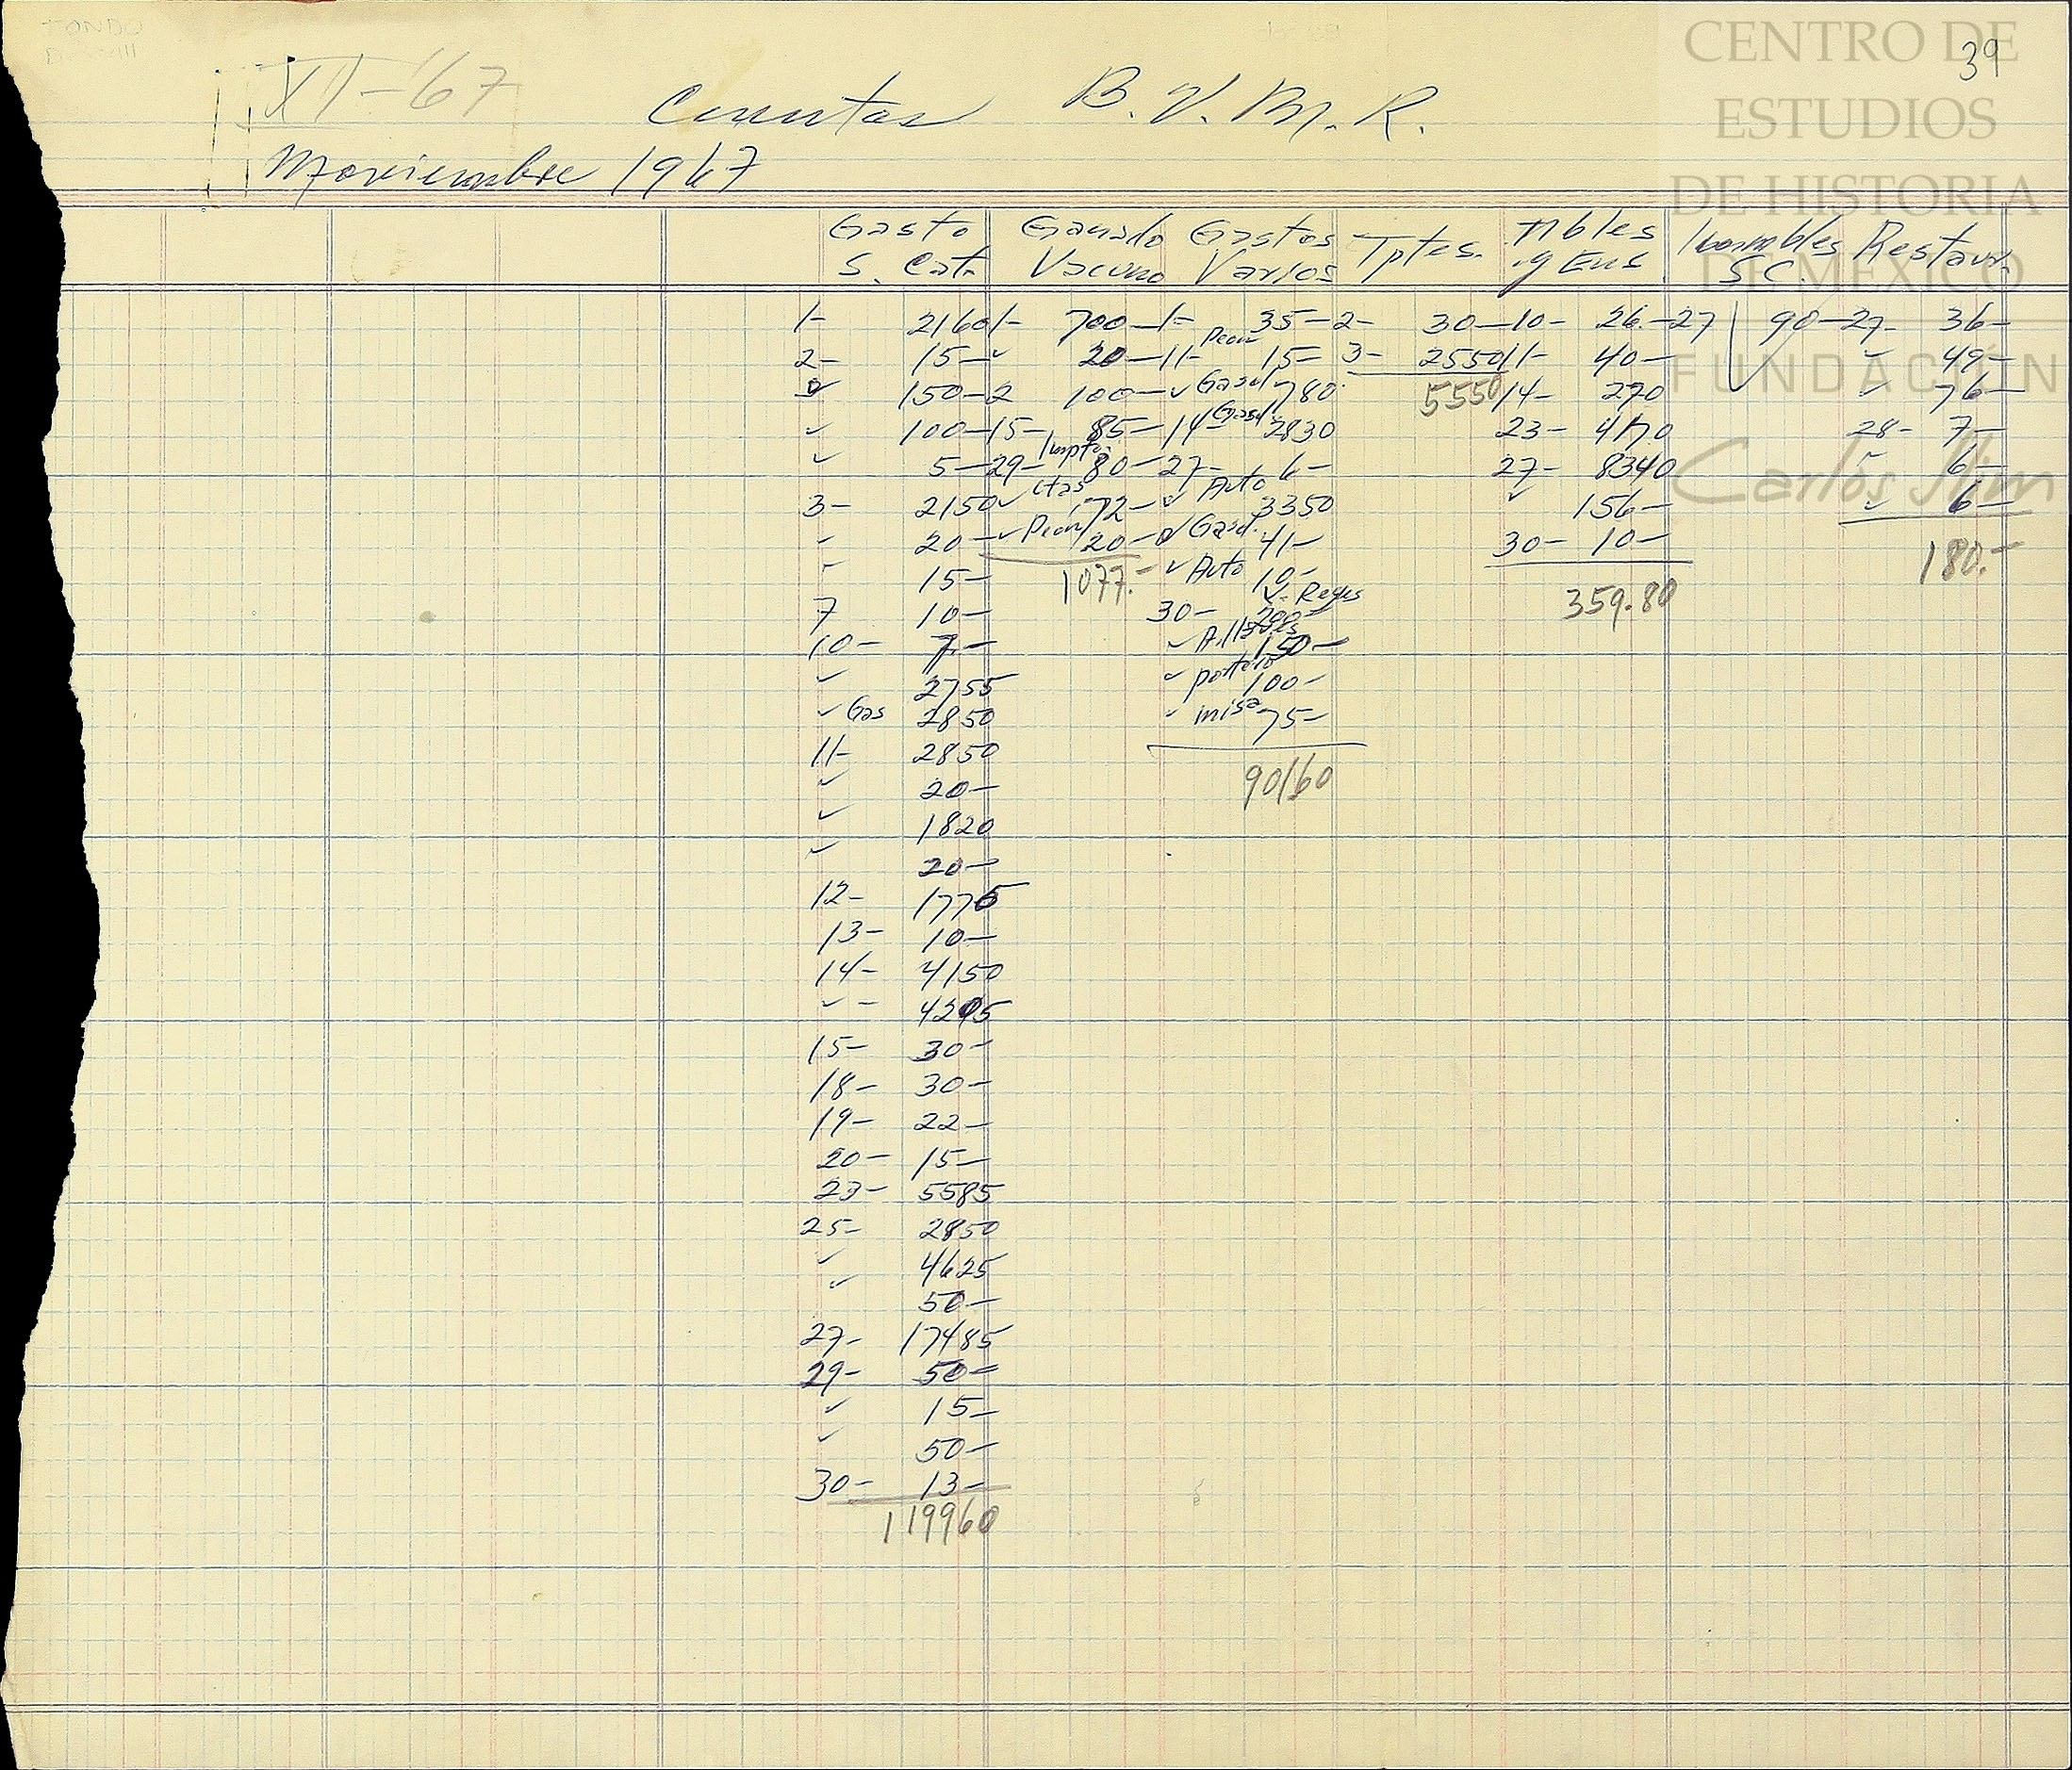 39
XI-67
Cuentas B. V. M. R.
Noviembre 1967
Gasto Ganado Gastos Tptes. Mbles Inmbles Restaur.
S. Cat. Vacuno Varios y Ens. S C.
1- 2160 1- 700- 1- 35- 2- 30- 10- 26.- 27 90- 27- 36-
2- 15- " 20- 11- Peon 15- 3- 2550 11- 40- " 49-
" 150- 2 100- " Gasol 780 5550 14- 270 " 76-
" 100- 15- 85- 14- Gasol 2830 23- 4170 28- 7-
" 5- 29- Impto 80- 27- 6- 27- 8340 " 6-
3- 2150 " ctas 72- " Auto 3350 " 156- " 6-
" 20- " Peon 20- " Gasol. 41- 30- 10- 180.-
" 15- 1077.- " Auto 10- 359.80
7 10- 30- V. Reyes 200-
10- 7.- " 150-
" 2755 " portero 100-
" Gas 2850 " misa 75-
11- 2850 90160
" 20-
" 1820
" 20-
12- 1775
13- 10-
14- 4150
" - 4295
15- 30-
18- 30-
19- 22-
20- 15-
23- 5585
25- 2850
" 4625
" 50-
27- 17485
29- 50-
" 15-
" 50-
30- 13-
119960
CENTRO DE
ESTUDIOS
DE HISTORIA
DE MÉXICO
FUNDACIÓN
Carlos Slim